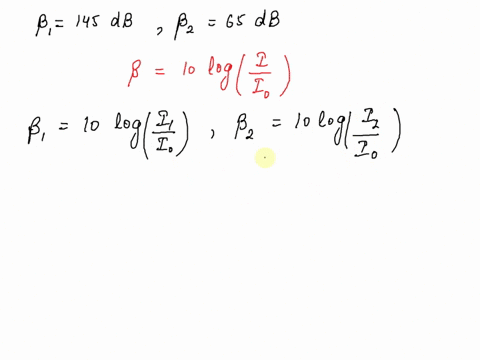 β₁ = 145 dB , β₂ = 65 dB
β = 10 log(I/I₀)
β₁ = 10 log(I₁/I₀) , β₂ = 10 log(I₂/I₀)